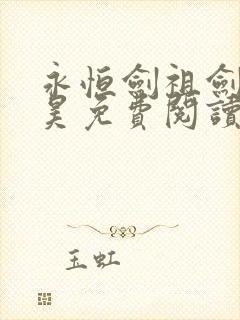 永恒劍祖劍
昊免費閱讀
玉虹